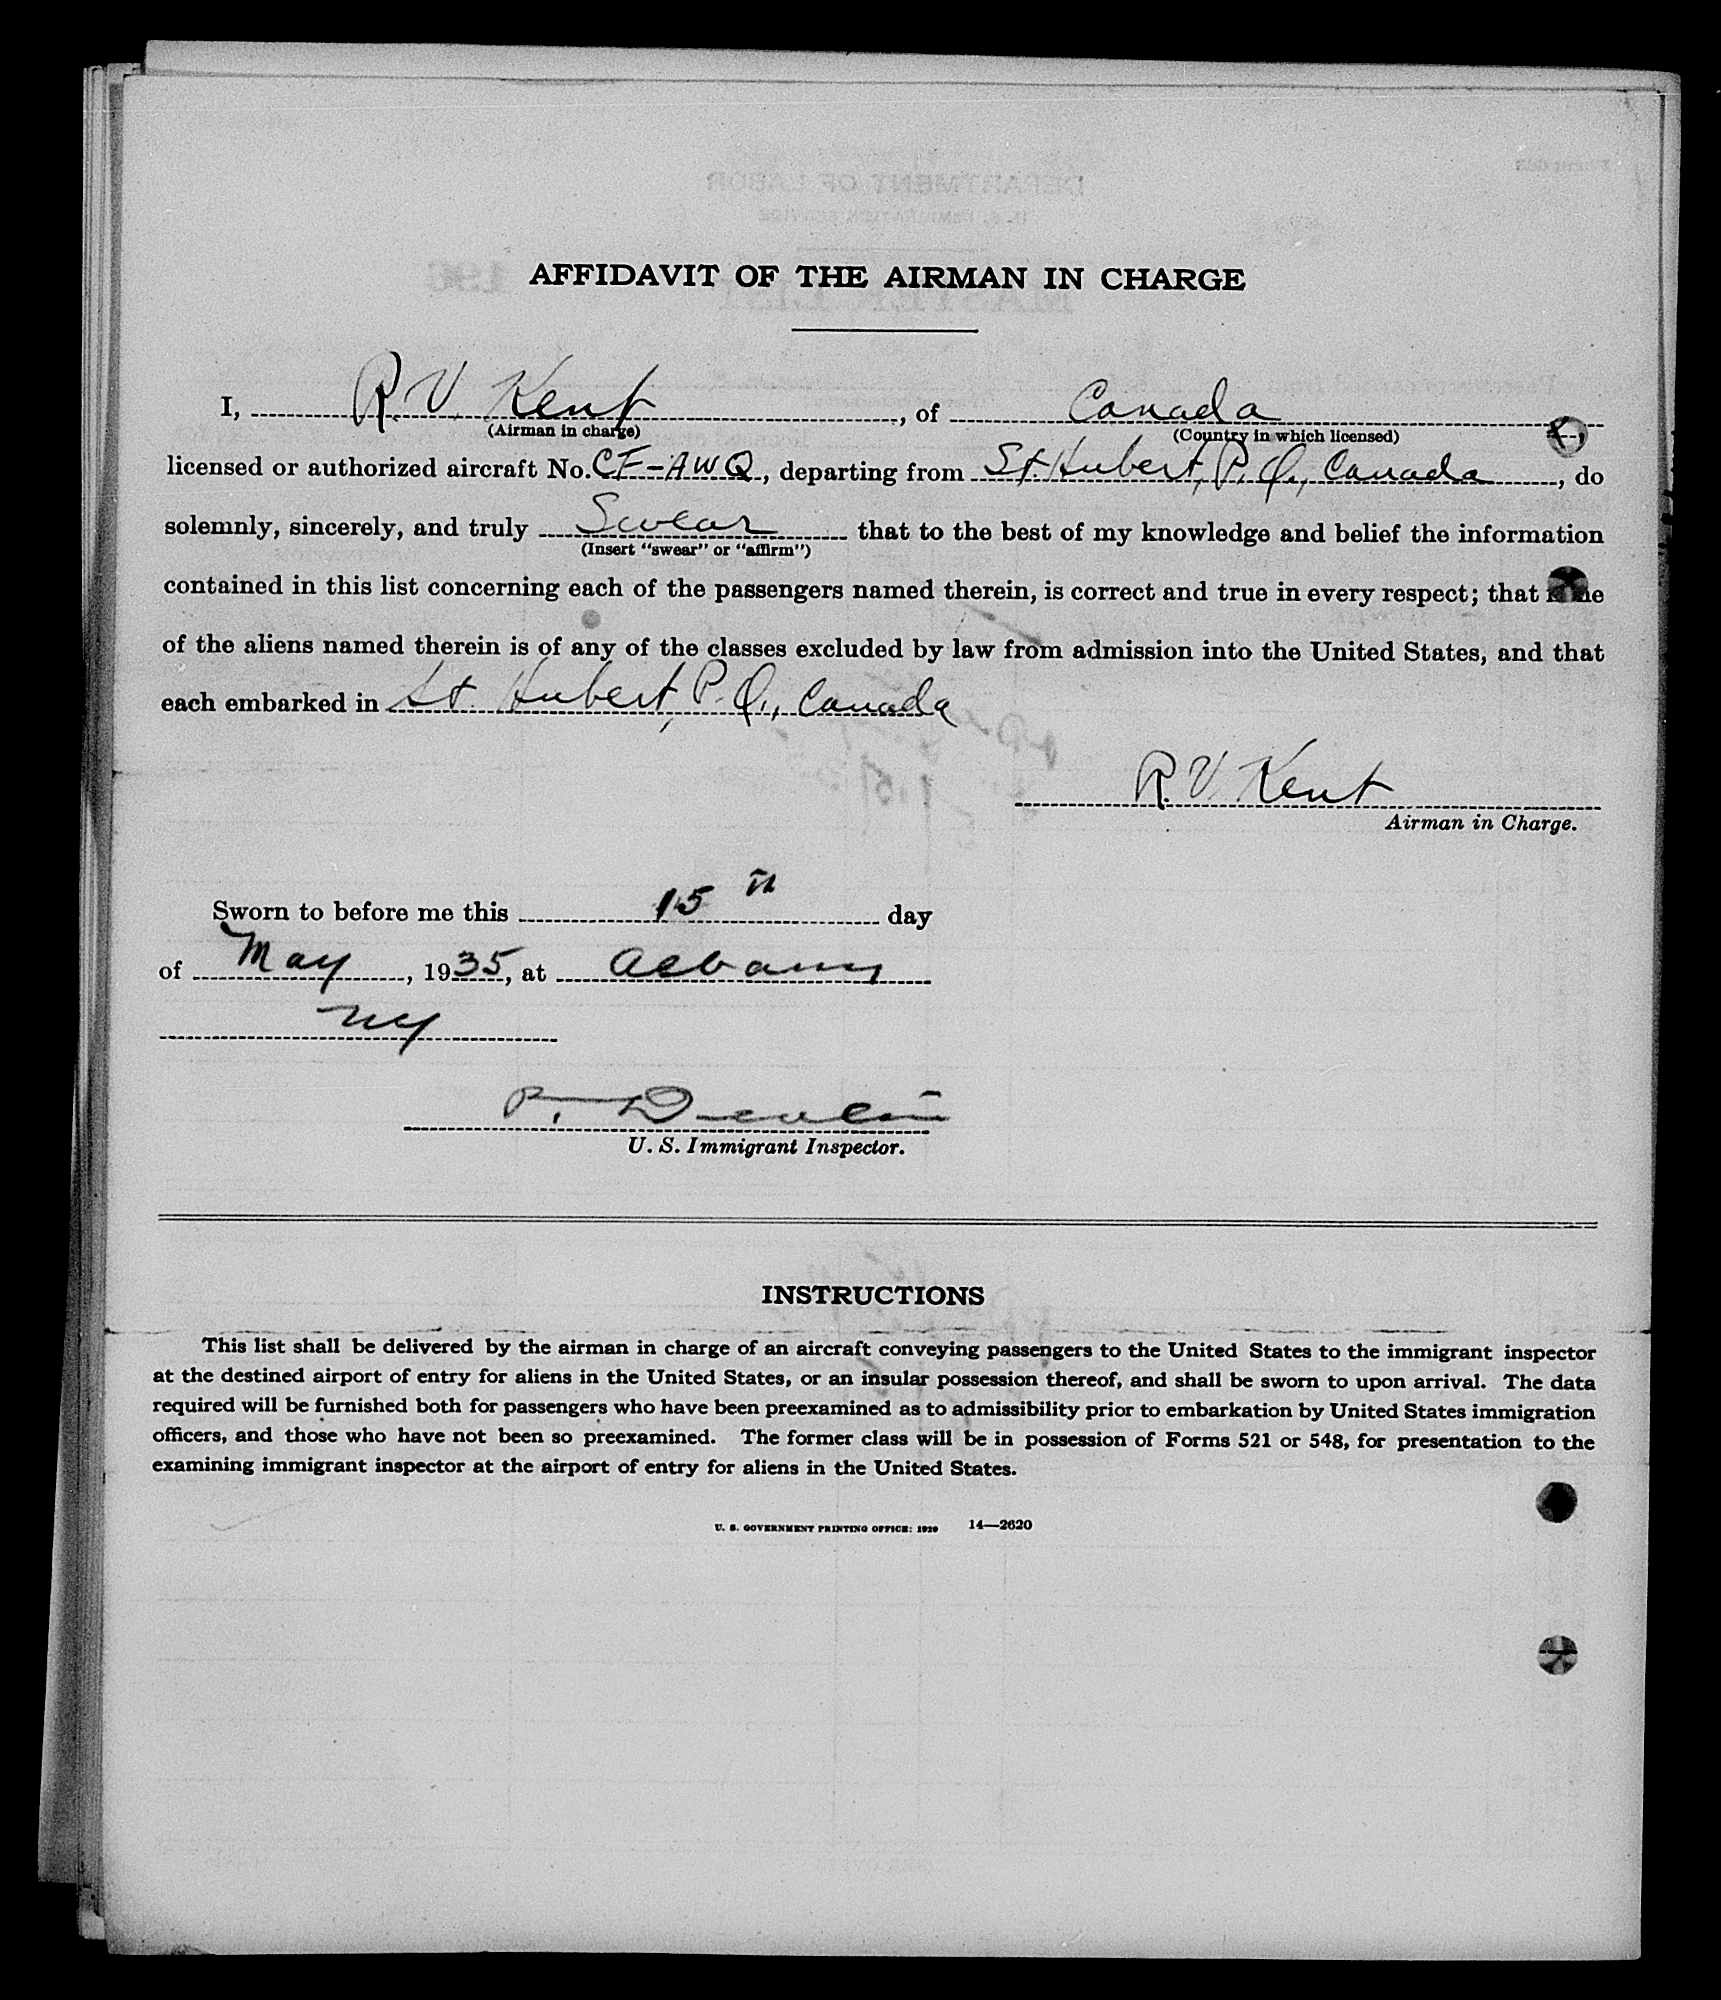 AFFIDAVIT OF THE AIRMAN IN CHARGE
I, R. V. Kent, of Canada
(Airman in charge) (Country in which licensed)
licensed or authorized aircraft No. CF-AWQ, departing from St. Hubert, P. Q., Canada, do
solemnly, sincerely, and truly Swear that to the best of my knowledge and belief the information
(Insert "swear" or "affirm")
contained in this list concerning each of the passengers named therein, is correct and true in every respect; that none
of the aliens named therein is of any of the classes excluded by law from admission into the United States, and that
each embarked in St. Hubert, P. Q., Canada
R. V. Kent
Airman in Charge.
Sworn to before me this 15th day
of May, 1935, at Albany
NY
P. Devlin
U. S. Immigrant Inspector.
INSTRUCTIONS
This list shall be delivered by the airman in charge of an aircraft conveying passengers to the United States to the immigrant inspector
at the destined airport of entry for aliens in the United States, or an insular possession thereof, and shall be sworn to upon arrival. The data
required will be furnished both for passengers who have been preexamined as to admissibility prior to embarkation by United States immigration
officers, and those who have not been so preexamined. The former class will be in possession of Forms 521 or 548, for presentation to the
examining immigrant inspector at the airport of entry for aliens in the United States.
U. S. GOVERNMENT PRINTING OFFICE: 1929 14—2620